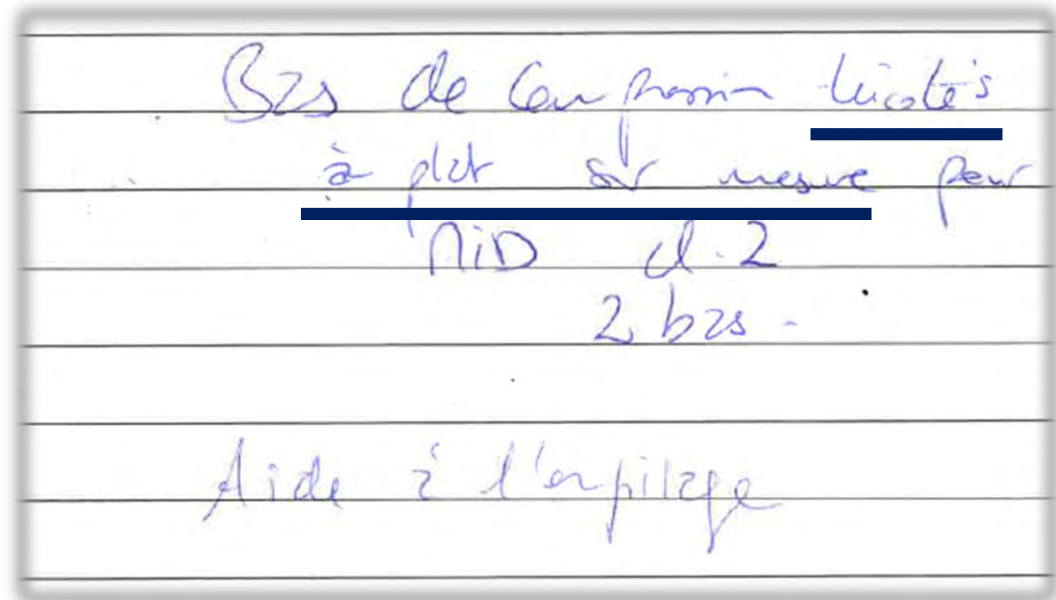 Bas de compression tricotés
à plat sur mesure pour
MiD cl. 2
2 bas -
Aide à l'enfilage